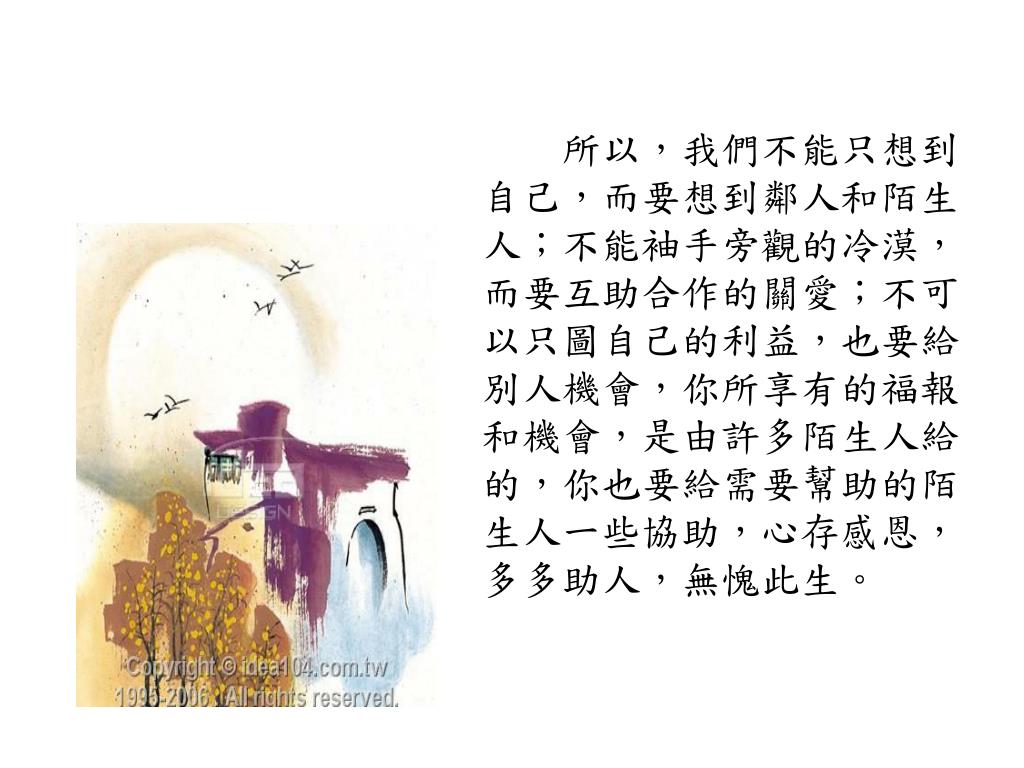 所以，我們不能只想到
自己，而要想到鄰人和陌生
人；不能袖手旁觀的冷漠，
而要互助合作的關愛；不可
以只圖自己的利益，也要給
別人機會，你所享有的福報
和機會，是由許多陌生人給
的，你也要給需要幫助的陌
生人一些協助，心存感恩，
多多助人，無愧此生。
DESIGN
Copyright © idea104.com.tw
1995-2006. All rights reserved.